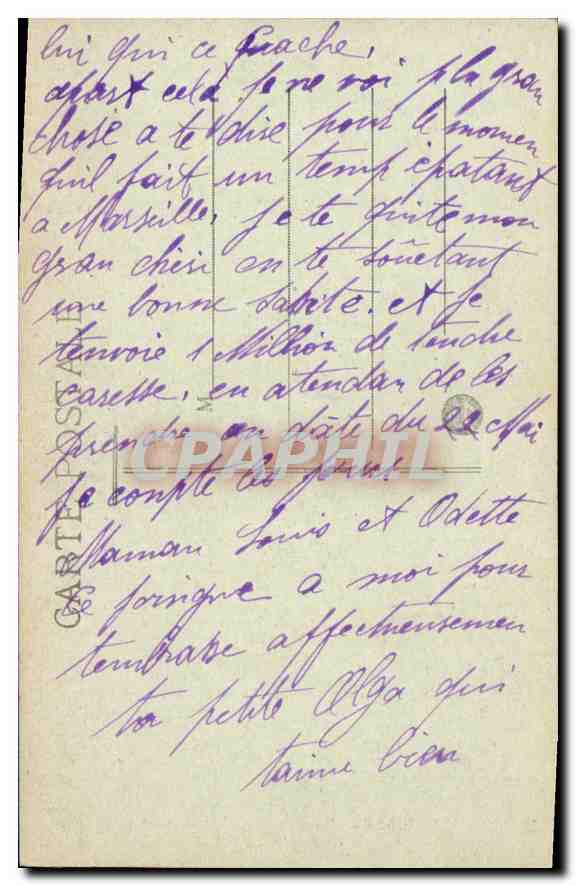 lui qui ce quache,
apart cela je ne voi plu gran
chose a te dire pour le momen
quil fait un temp épatant
a Marseille, je te quite mon
gran chéri en te souétant
une bonne sante. et je
tenvoie 1 Million de tendre
caresse, en atendan de les
prendre en dâte du 22 Mai
je conpte les jours
Maman Louis et Odette
se joingne a moi pour
tembrase affectueusemen
ta petite Olga qui
taime bien
CARTE POSTALE
M
CPAPHIL.com